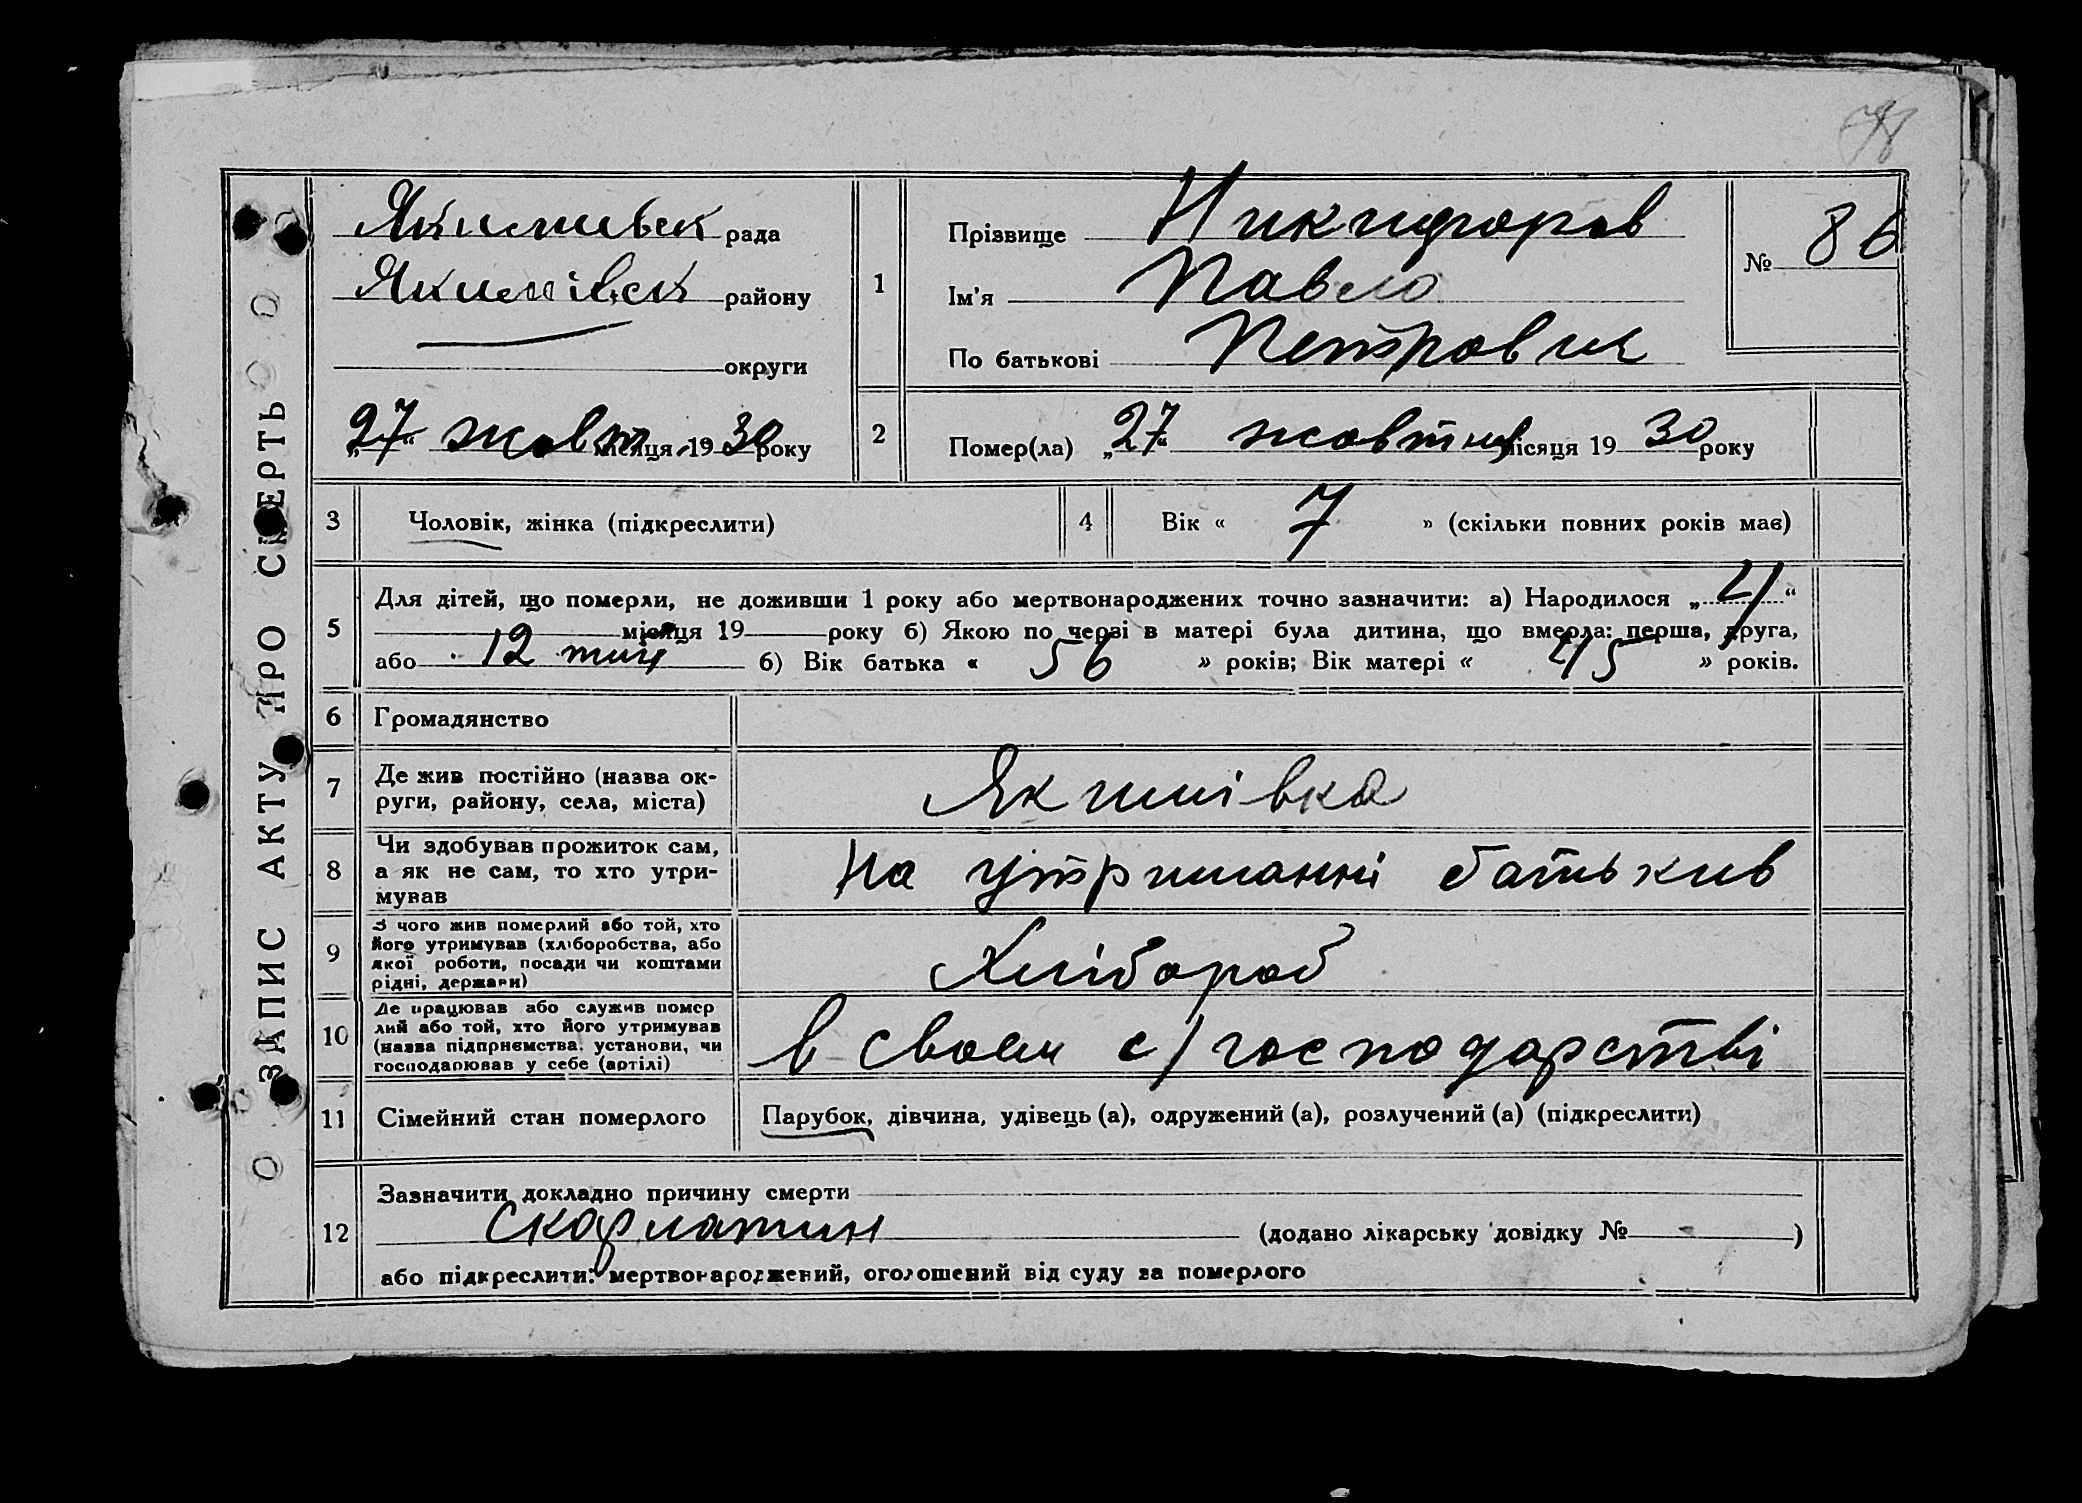 ЗАПИС АКТУ ПРО СМЕРТЬ
Якимивськ рада
Якимівськ району
округи
„27“ жовтн місяця 1930 року
1
Прізвище Никифоров
Ім'я Павло
По батькові Петрович
№ 86
2
Помер(ла) „27“ жовтня місяця 1930 року
3
Чоловік, жінка (підкреслити)
4
Вік « 7 » (скільки повних років має)
5
Для дітей, що померли, не доживши 1 року або мертвонароджених точно зазначити: а) Народилося „ “
місяця 19 року б) Якою по черзі в матері була дитина, що вмерла: перша, друга,
або 12 б) Вік батька « 56 » років; Вік матері « 45 » років.
6
Громадянство
7
Де жив постійно (назва ок-
руги, району, села, міста)
Якимівка
8
Чи здобував прожиток сам,
а як не сам, то хто утри-
мував
На утриманні батькив
9
З чого жив померлий або той, хто
його утримував (хліборобства, або
якої роботи, посади чи коштами
рідні, держави)
Хлібороб
10
Де працював або служив помер
лий або той, хто його утримував
(назва підприємства, установи, чи
господарював у себе (артілі)
в своем с/господарстві
11
Сімейний стан померлого
Парубок, дівчина, удівець (а), одружений (а), розлучений (а) (підкреслити)
12
Зазначити докладно причину смерти
скарлатин
(додано лікарську довідку № )
або підкреслити: мертвонароджений, оголошений від суду за померлого